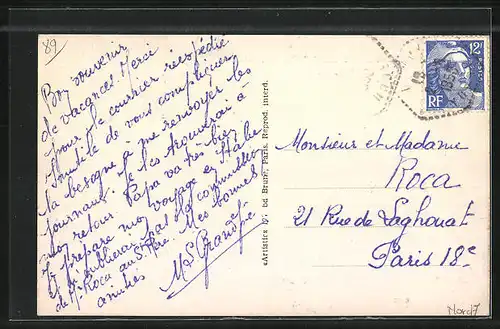 89
Bon souvenir
de vacances. Merci
pour le courrier réexpédié
Inutile de vous compliquer
la besogne à me renvoyer les
journaux. Je les trouverai à
mon retour. Papa va très bien
Je prépare mon voyage en Italie
et n'oublierai pas la commission
de M. Roca au St Père. Mes bonnes
amitiés
«Artistic» bd Brune, Paris. Reprod. interd.
12F
RF
Monsieur et Madame
Roca
21 Rue de Laghouat
Paris 18e
Nord7